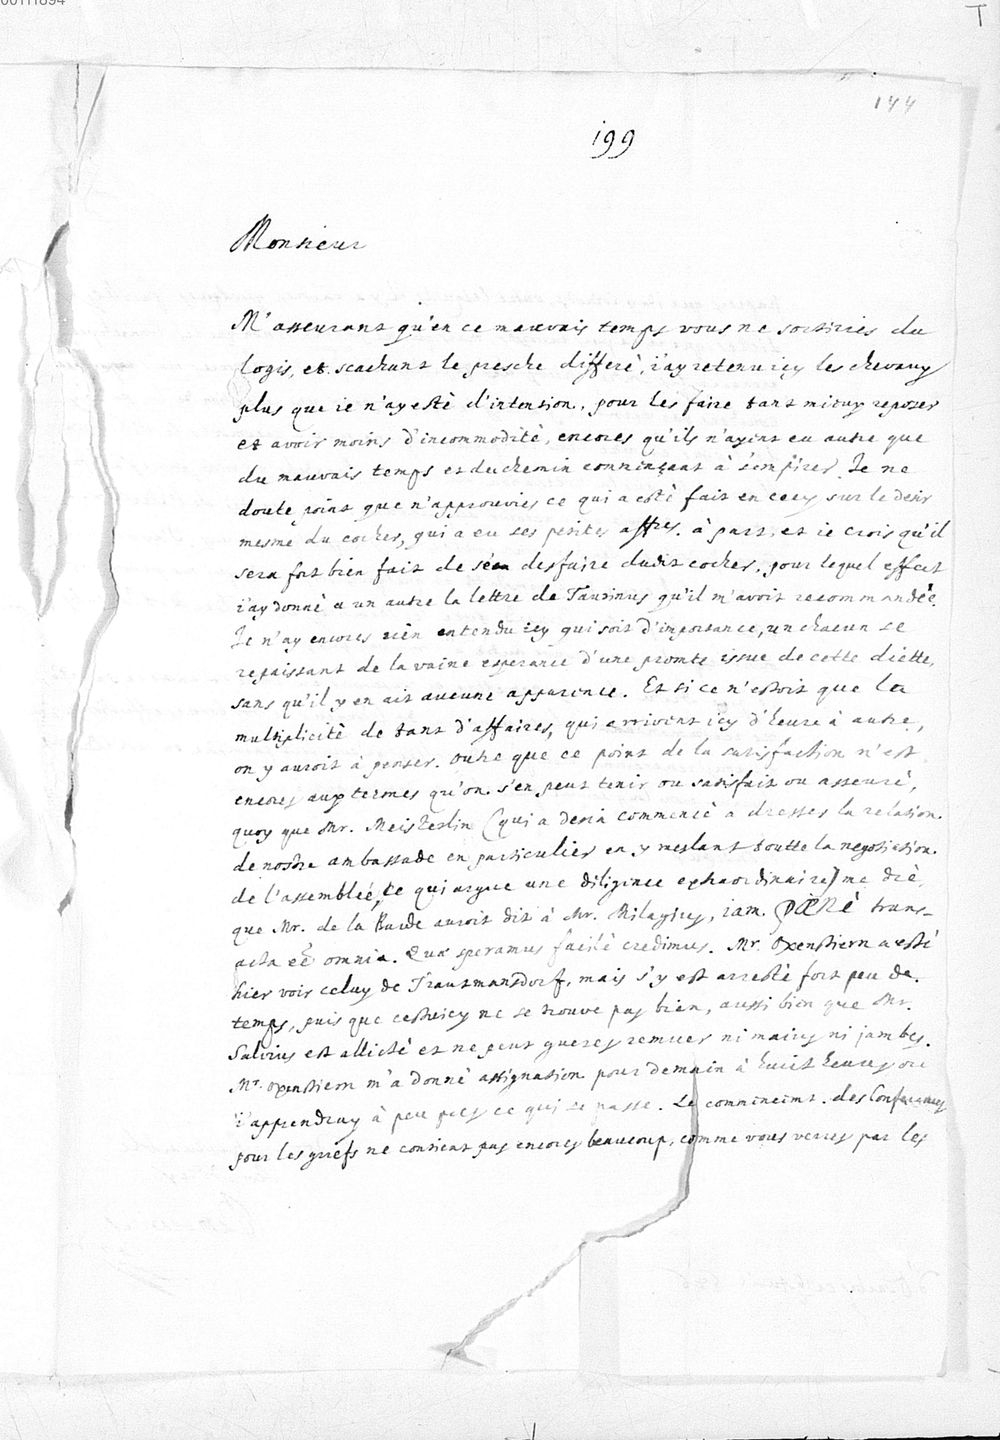 00111894
T
144
199
Monsieur
M'asseurant qu'en ce mauvais temps vous ne sortiriés du
logis, et scachant le presche differé, i'ay retenu icy les chevaux
plus que ie n'ay esté d'intention, pour les faire tant mieux reposer
et avoir moins d'incommodité, encores qu'ils n'ayent eu autre que
du mauvais temps et du chemin commençant à s'empirer. Je ne
doute point que n'approuviés ce qui a esté fait en cecy sur le desir
mesme du cocher, qui a eu ses petites affres. à part, et ie crois qu'il
sera fort bien fait de s'en desfaire dudit cocher, pour lequel effect
i'ay donné a un autre la lettre de Taurinus qu'il m'avoit recommandée.
Je n'ay encores rien entendu icy qui soit d'importance, un chacun se
repaissant de la vaine esperance d'une promte issue de cette diette,
sans qu'il y en ait aucune apparence. Et si ce n'estoit que la
multiplicité de tant d'affaires, qui arrivent icy d'heure à autre,
on y auroit à penser. Outre que ce point de la satisfaction n'est
encores aux termes qu'on s'en peut tenir ou satisfait ou asseuré,
quoy que Mr. Meisterlin (qui a desia commencé a dresser la relation
de nostre ambassade en particulier en y meslant toutte la negotiation
de l'assemblée, ce qui argue une diligence extraordinaire) me die,
que Mr. de la Barde auroit dit à Mr. Milagius, iam PŒNÈ trans-
acta eē omnia. Quæ speramus facilè credimus. Mr. Oxenstiern a esté
hier voir celuy de Trautmansdorf, mais s'y est arresté fort peu de
temps, puis que cestuicy ne se trouve pas bien, aussi bien que Mr.
Salvius est allicté et ne peut gueres remuer ni mains ni jambes.
Mr. Oxenstiern m'a donné assignation pour demain à huict heures ou
i'apprendray à peu pres ce qui se passe. Le commencemt. des Conferences
pour les griefs ne contient pas encores beaucoup, comme vous verres par les